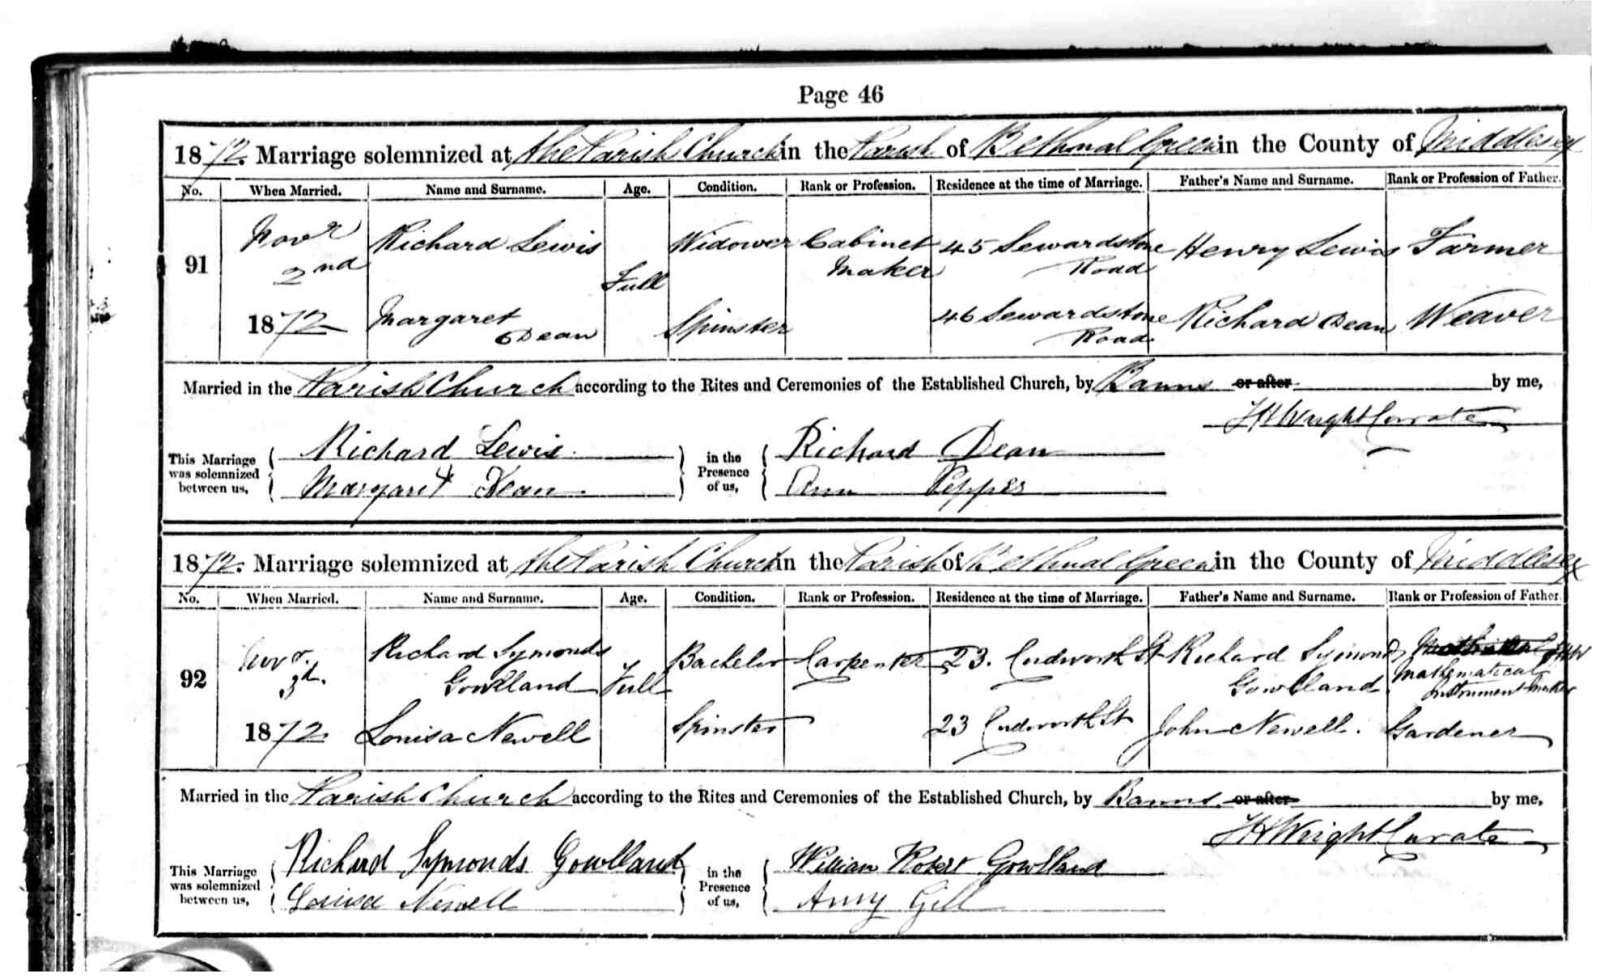 Page 46
1872. Marriage solemnized at the Parish Church in the Parish of Bethnal Green in the County of Middlesex
No. When Married. Name and Surname. Age. Condition. Rank or Profession. Residence at the time of Marriage. Father's Name and Surname. Rank or Profession of Father.
91 Novr 2nd 1872
Richard Lewis Full Widower Cabinet Maker 45 Sewardstone Road Henry Lewis Farmer
Margaret Dean Spinster 46 Sewardstone Road Richard Dean Weaver
Married in the Parish Church according to the Rites and Ceremonies of the Established Church, by Banns or after by me,
Wright Curate
This Marriage was solemnized between us,
Richard Lewis
Margaret Dean
in the Presence of us,
Richard Dean
Ann
1872. Marriage solemnized at the Parish Church in the Parish of Bethnal Green in the County of Middlesex
No. When Married. Name and Surname. Age. Condition. Rank or Profession. Residence at the time of Marriage. Father's Name and Surname. Rank or Profession of Father.
92 Novr. 3d. 1872
Richard Symonds Gowlland Full Bachelor Carpenter 23. Cudworth St Richard Symonds Gowlland Mathematical Instrument Maker
Louisa Newell Spinster 23 Cudworth St John Newell. Gardener
Married in the Parish Church according to the Rites and Ceremonies of the Established Church, by Banns or after by me,
Wright Curate
This Marriage was solemnized between us,
Richard Symonds Gowlland
Louisa Newell
in the Presence of us,
William Robert Gowlland
Amy Gill